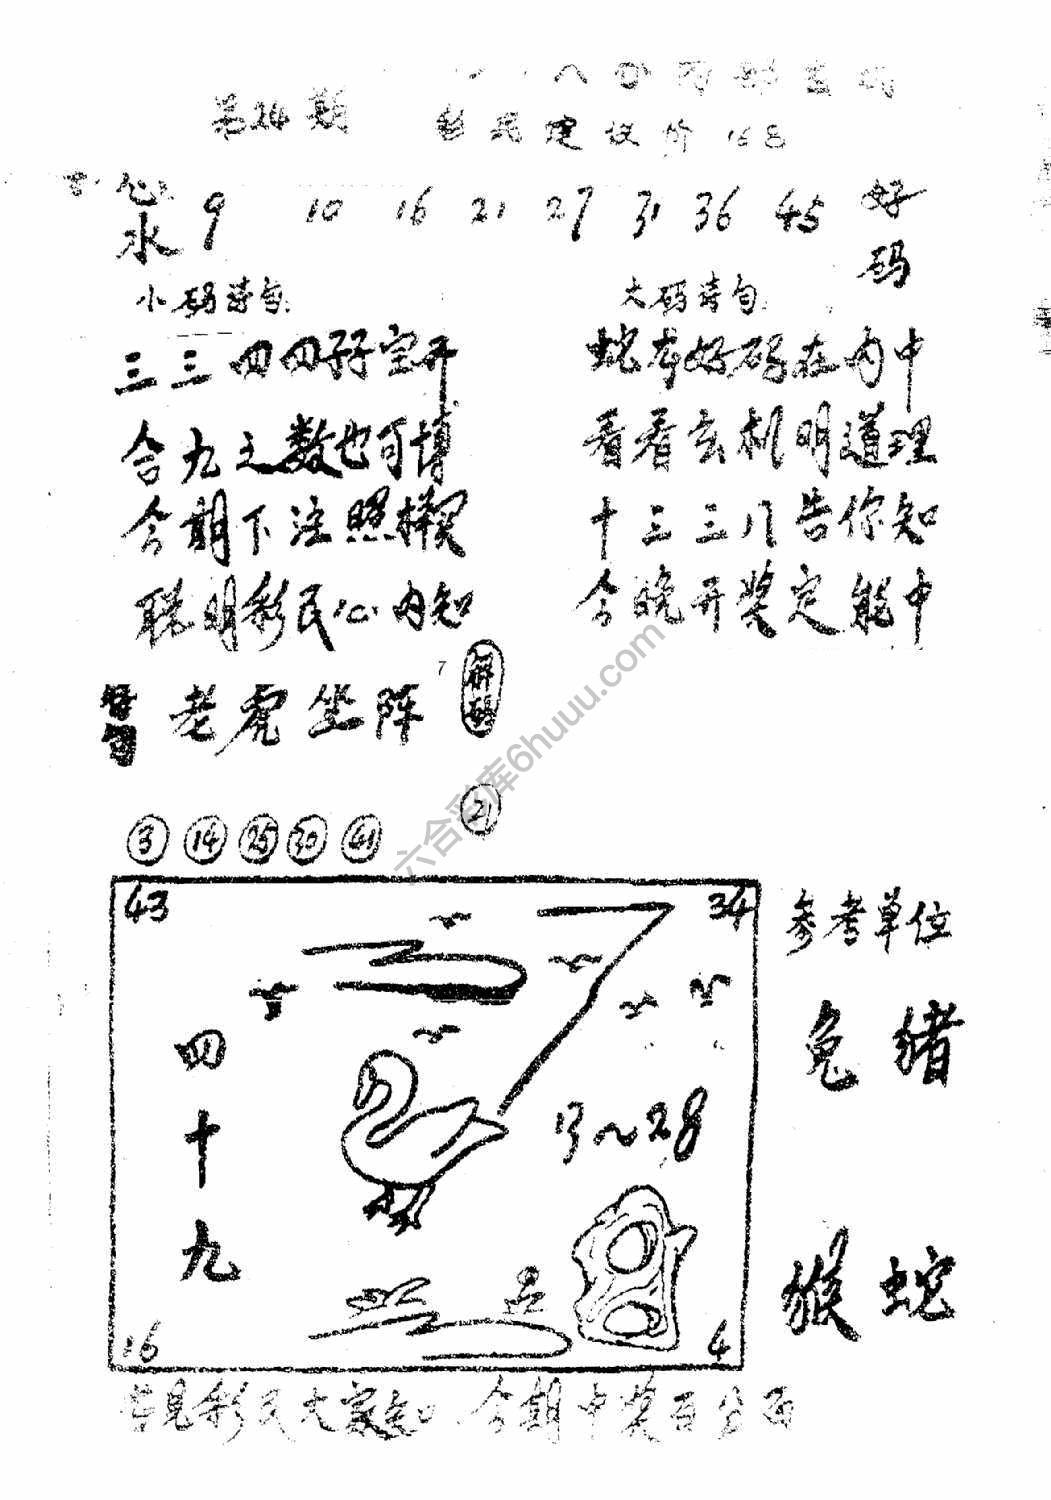 第24期
彩民建议价 168
心水 9 10 16 21 27 31 36 45 好码
小码诗句:
三三四四孖宝开
合九之数也可博
今期下注照模买
聪明彩民心内知
大码诗句:
蛇本好码在内中
看看玄机明道理
十三三八告你知
今晚开奖定能中
7
老虎坐阵
解码
3 14 25 30 41
21
43 34
四十九
13~28
16 4
参考单位
兔 猪
猴 蛇
彩民大家知 今期中奖百分百
六合彩库6huuu.com